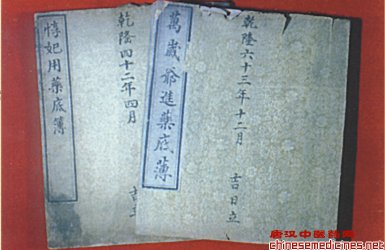 乾隆六十三年十二月
吉日立
萬歲爺進藥底簿
乾隆四十二年四月
吉
惇妃用藥底簿
唐汉中医药网
chinesemedicines.net